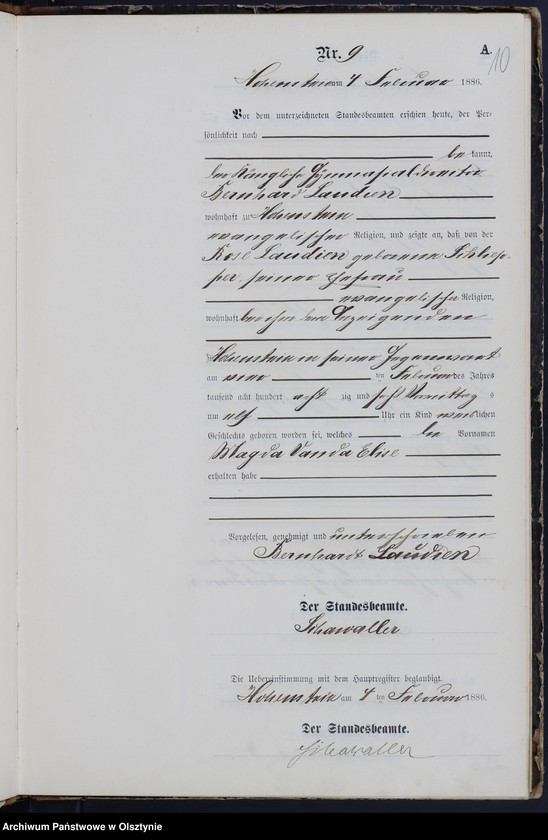 Nr. 9
A.
10
Hohenstein am 4 Februar 1886.
Vor dem unterzeichneten Standesbeamten erschien heute, der Per-
sönlichkeit nach
be kannt,
der Königliche Gymnasialdirektor
Bernhard Laudien
wohnhaft zu Hohenstein
evangelischer Religion, und zeigte an, daß von der
Rose Laudien geborenen
seiner Ehefrau
evangelischer Religion,
wohnhaft bei ihm dem Anzeigenden
Hohenstein in seiner Gegenwart
am vier ten Februar des Jahres
tausend acht hundert acht zig und sechs Vormittag s
um elf Uhr ein Kind weiblichen
Geschlechts geboren worden sei, welches die Vornamen
Magda Vanda Elise
erhalten habe
Vorgelesen, genehmigt und unterschrieben
Bernhardt Laudien
Der Standesbeamte.
Schawaller
Die Uebereinstimmung mit dem Hauptregister beglaubigt.
Hohenstein am 4 ten Februar 1886.
Der Standesbeamte.
Schawaller
Archiwum Państwowe w Olsztynie